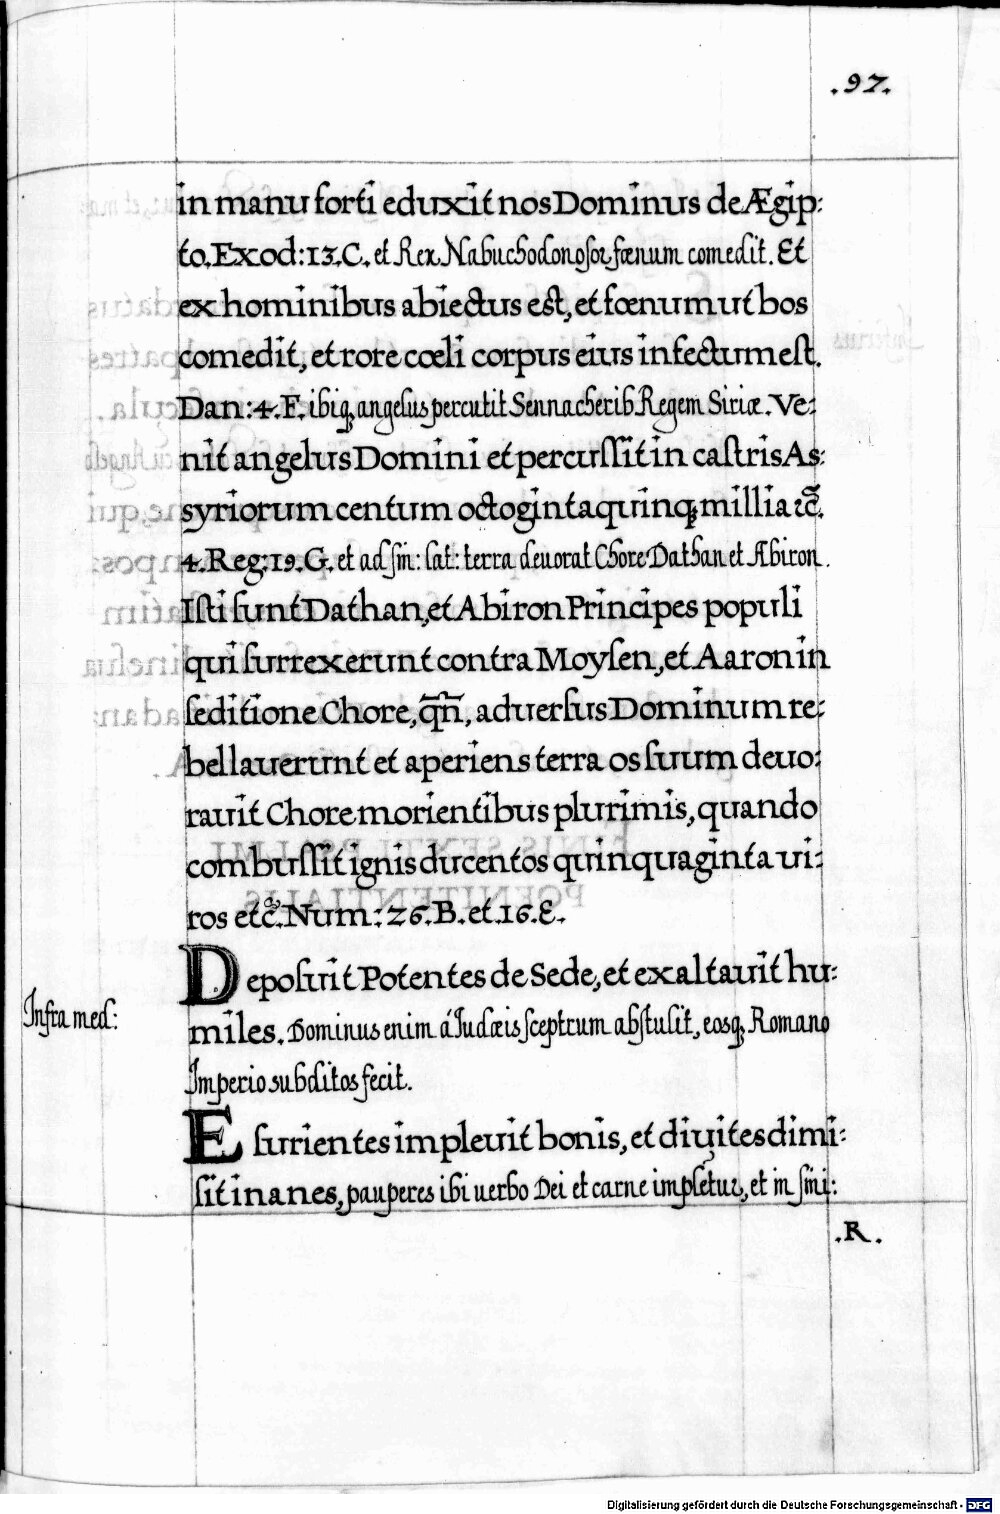 .97.
in manu forti eduxit nos Dominus de Ægip:
to. Exod: 13. C. et Rex Nabuchodonosor fœnum comedit. Et
ex hominibus abiectus est, et fœnum ut bos
comedit, et rore cœli corpus eius infectum est.
Dan: 4. F. ibiq₃ angelus percutit Sennacherib Regem Siriæ. Ve:
nit angelus Domini et percussit in castris As:
syriorum centum octoginta quinq₃ millia ꝛc̃.
4. Reg: 19. G. et ad fin: lat: terra deuorat Chore Dathan et Abiron.
Isti sunt Dathan, et Abiron Principes populi
qui surrexerunt contra Moysen, et Aaron in
seditione Chore, qñ, aduersus Dominum re:
bellauerunt et aperiens terra os suum deuo:
rauit Chore morientibus plurimis, quando
combussit ignis ducentos quinquaginta ui:
ros etc̃. Num: 26. B. et. 16. E.
Deposuit Potentes de Sede, et exaltauit hu:
Infra med:
miles. Dominus enim á Iudæis sceptrum abstulit, eosq₃ Romano
Imperio subditos fecit.
Esurientes impleuit bonis, et diuites dimi:
sit inanes, pauperes ibi uerbo Dei et carne impletur, et in fini:
.R.
Digitalisierung gefördert durch die Deutsche Forschungsgemeinschaft - DFG